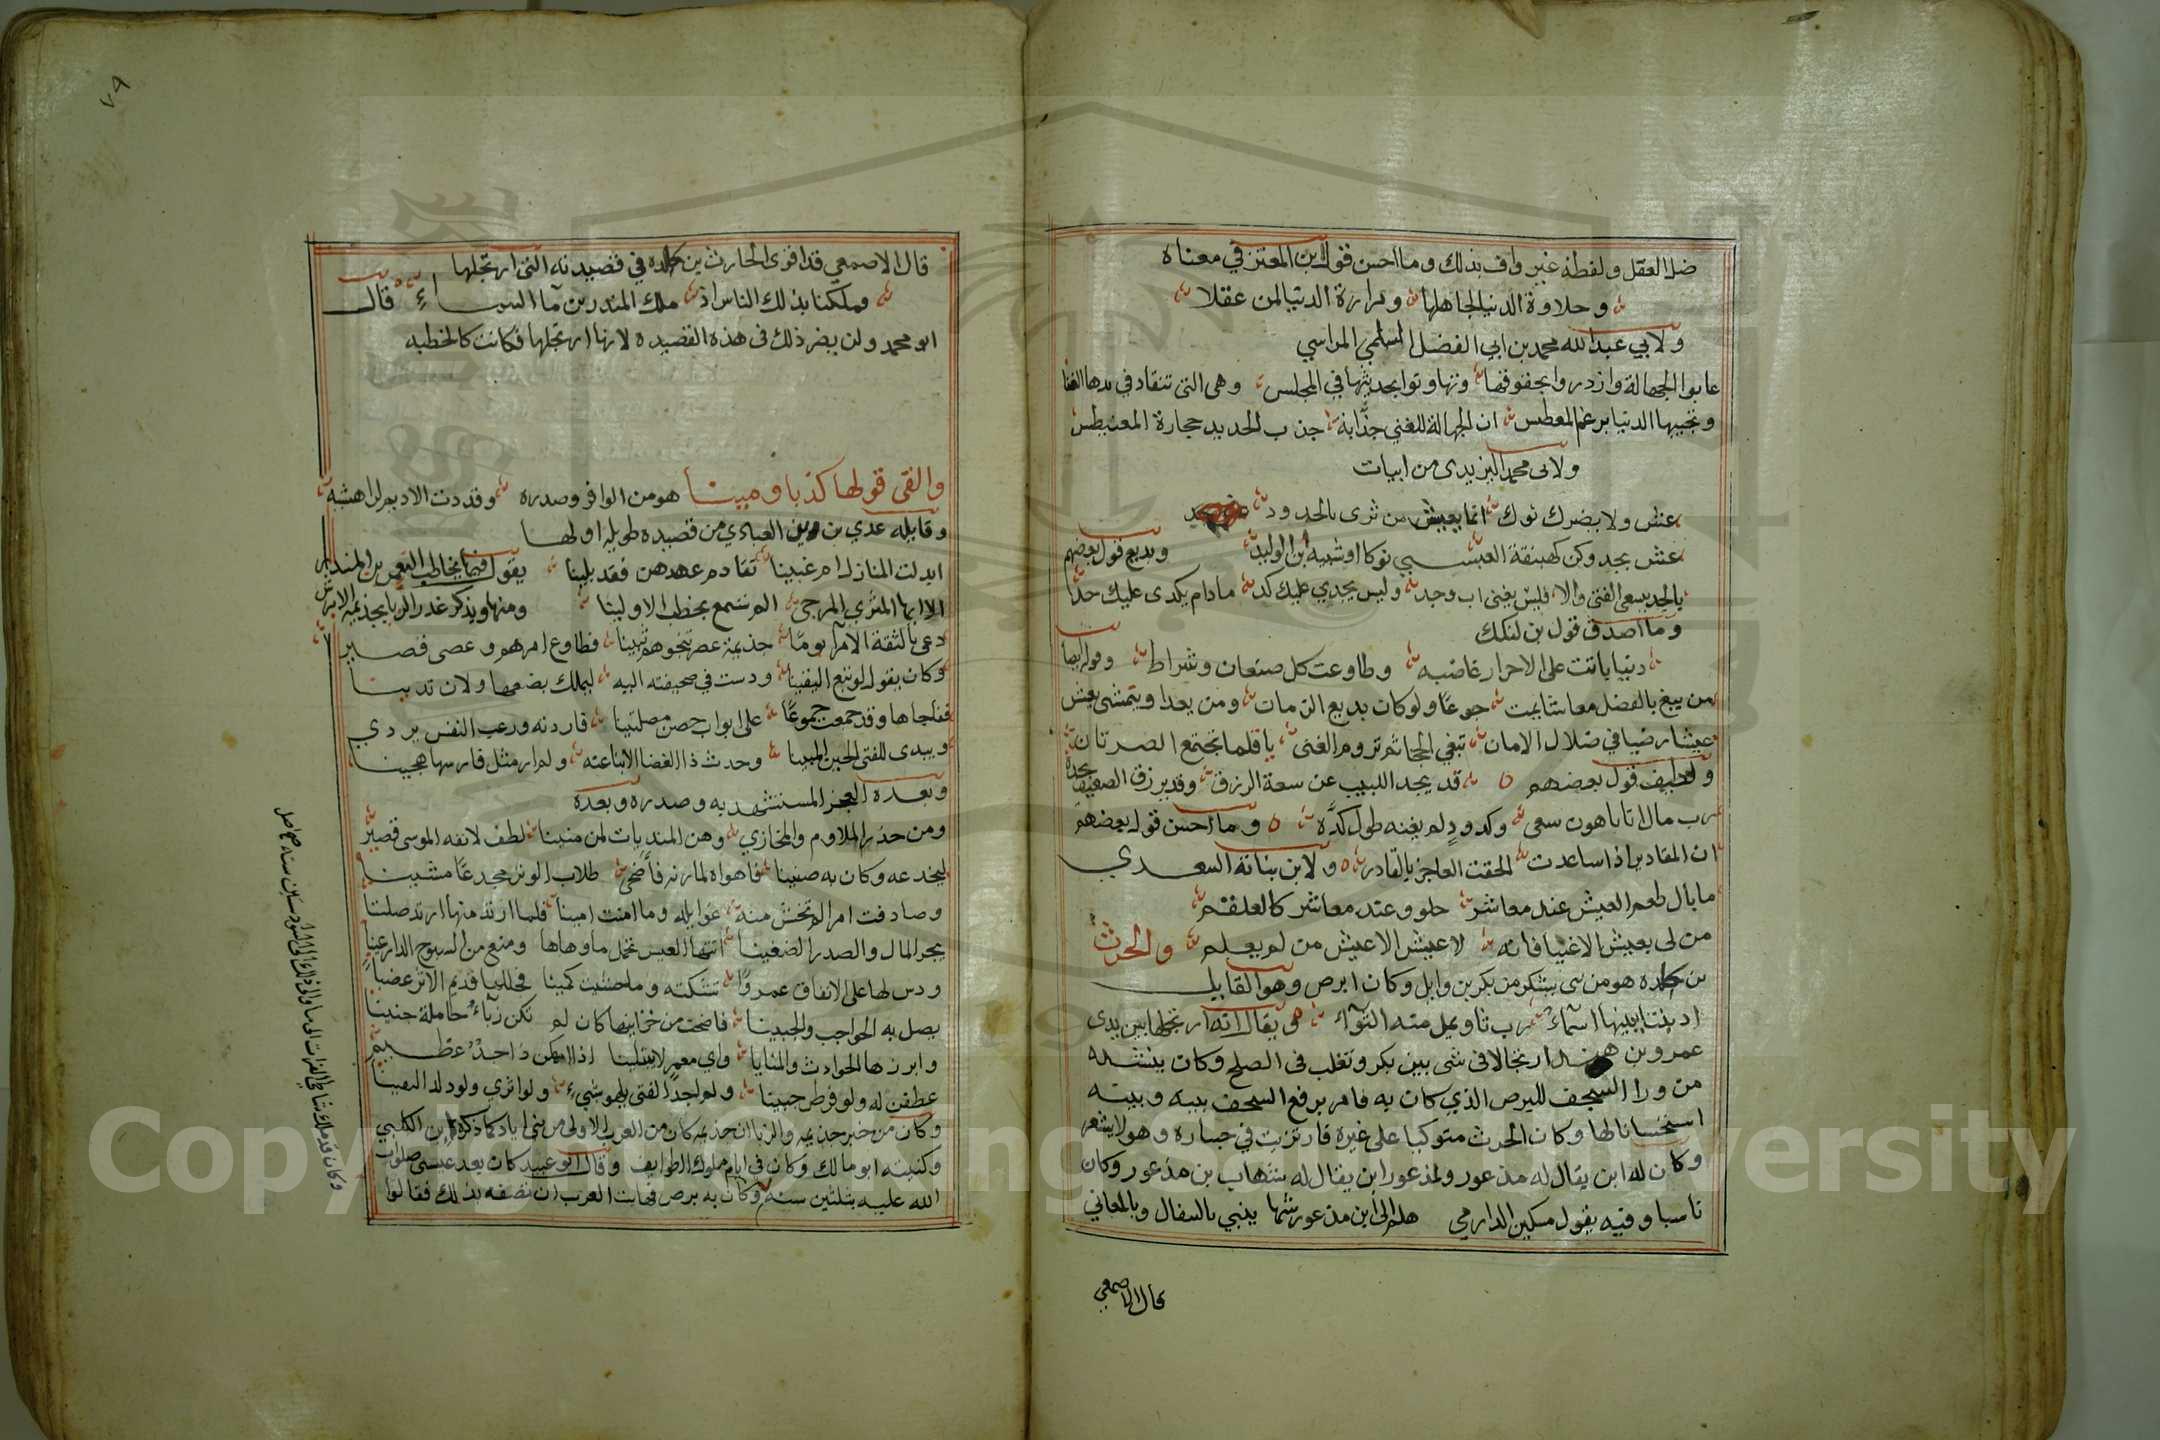 ضل العقل ولفظه غير واف بذلك وما احسن قول ابن المعتز في معناه
وحلاوة الدنيا لجاهلها ومرارة الدنيا لمن عقلا
ولابي عبد الله محمد بن ابي الفضل السلمي المراسي
عابوا الجهالة وازدروا بحقوقها وتهاونوا بحديثها في المجلس وهي التي تنقاد في يدها الغنا
وتجيبها الدنيا برغم المعطس ان الجهالة للغني جذابة جذب الحديد حجارة المغنيطس
ولابي محمد اليزيدي من ابيات
عش ولا يضرك نوك انما يعيش من ترى بالجدود
عش بجد وكن كهبنقة العبسي نوكا او شيبة ابن الوليد وبديع قول بعضهم
بالجد يسعى الفتى والا فليس يغني اب وجد وليس يجدي عليك كد ما دام يكدى عليك جد
وما اصدق قول بن لنكك
دنيا باتت على الاحرار غاضبه وطاوعت كل صفعان وضراط وقوله ايضا
من يبغ بالفضل معاشا يمت جوعا ولو كان بديع الزمان ومن يعدا ويتمشى يعش
عيشا رضيا في ضلال الامان تبغي الحجا ثم تروم الغنى يا قلما تجتمع الضرتان
ولطيف قول بعضهم قد يجد اللبيب عن سعة الرزق وقد يرزق الضعيف بجده
رب مال اتا باهون سعي وكدود لم يغنه طول كده وما احسن قول بعضهم
ان المقادير اذا ساعدت الحقت العاجز بالقادر ولابن نباتة السعدي
ما بال طعم العيش عند معاشر حلو وعند معاشر كالعلقم
من لي بعيش الاغنيا فانه لا عيش الا عيش من لم يعلم والحرث
بن حلزه هو من بني يشكر من بكر بن وايل وكان ابرص وهو القايل
اذنتنا ببينها اسماء رب ثاو يمل منه الثواء يقال انه ارتجلها بين يدى
عمرو بن هند ارتجالا في شى بين بكر وتغلب في الصلح وكان ينشده
من ورا السجف للبرص الذي كان به فامر برفع السجف بينه وبينه
استحسانا لها وكان الحرث متوكيا على غيرة فارتزت في جساره وهو لا يشعر
وكان له ابن يقال له مذعور ولمذعور ابن يقال له شهاب بن مذعور وكان
ناسبا وفيه يقول مسكين الدارمي هلم الى ابن مذعور شهاب ينبي بالسفال وبالمعاني
قال الاصمعي
٧٩
قال الاصمعي قد اقوى الحارث بن حلزه في قصيدته التي ارتجلها
وملكنا بذلك الناس اذ ملك المنذر بن ما السماء قال
ابو محمد ولن يضر ذلك في هذه القصيده لانها ارتجلها فكانت كالخطبه
والفى قولها كذبا ومينا هو من الوافر وصدره وقددت الاديم لراهشه
وقايله عدي بن زيد العبادي من قصيده طويله اولها
ابدلت المنازل ام عنينا تقادم عهدهن فقد بلينا يقول فيها يخاطب النعمن بن المنذر
الا ايها المثرى المرجى الم تسمع بخطب الاولينا ومنها ويذكر غدر الزبا بجذيمة الابرش
دعى بالثقة الامرا يوما جذيمة عصر ينجوهم ثبينا فطاوع امرهم وعصى قصيرا
وكان يقول لو تبع اليقينا ودست في صحيفته اليه ليملك بضعها ولان تدينا
ففاجاها وقد جمعت جموعا على ابواب حصن مصلتينا فاردته ورغب النفس يردي
ويبدى للفتى الحين المبينا وحدث ذا الغضا الانبا عنه ولم ار مثل فارسها هجينا
وبعده العجز المستشهد به وصدره وبعده
ومن حذر الملاوم والمخازي وهن المنديات لمن منينا لطف لانفه الموسى قصير
ليجدعه وكان به ضنينا فاهواه لمارنه فاضحى طلاب الوتر مجدعا مشينا
وصادفت امرا لم تخش منه غوايله وما امنت امينا فلما ارتد منها ارتد صلتا
يجر المال والصدر الضغينا اتتها العيس تحمل ما دهاها ومنع من المسوح الدارعينا
ودس لها على الانفاق عمروا تشكته وما خشيت كمينا فجللها قديم الاثر عضبا
يصل به الحواجب والجبينا فاضحت من خزاينها كان لم تكن زباء حاملة جنينا
وابرزها الحوادث والمنايا واي معمر لا يبتلينا اذا امهلن ذا جد عظيم
عطفن له ولو فرطن حينا ولم اجد الفتى يلهو بشيء ولو اثرى ولو ولد البنينا
وكان من خبر جذيمه والزبا ان جذيمه كان من العرب الاولى من بني اياد كما ذكره ابن الكلبي
وكنيته ابو مالك وكان في ايام ملوك الطوايف وقال ابو عبيد كان بعد عيسى صلوات
الله عليه بثلثين سنه وكان به برص فهابت العرب ان تصفه بذلك فقالوا